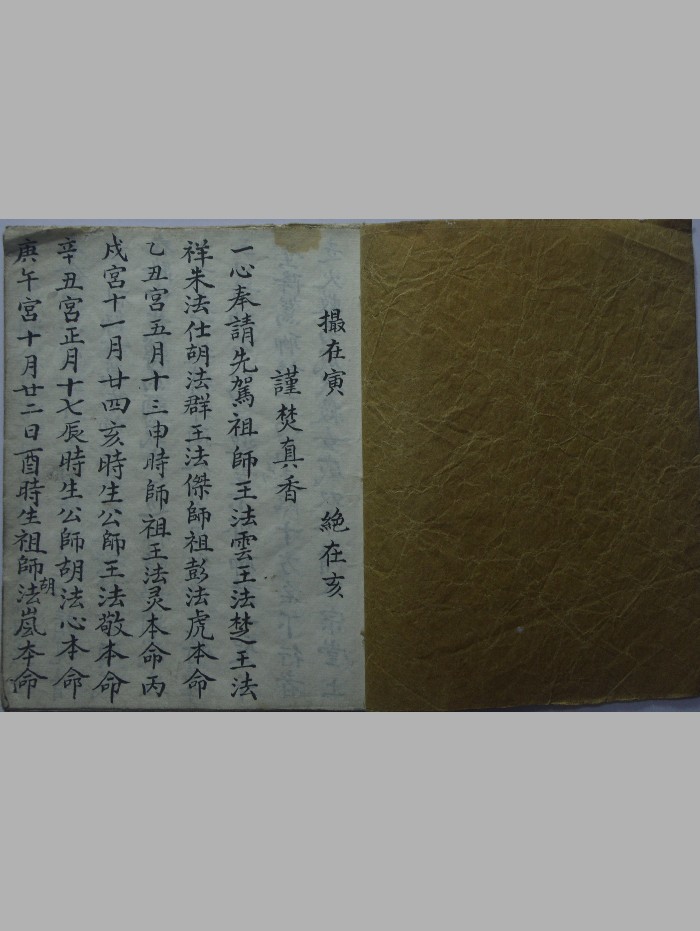 撮在寅 絕在亥
謹焚真香
一心奉請先駕祖師王法雲王法楚王法
祥朱法仕胡法群王法傑師祖彭法虎本命
乙丑宮五月十三申時師祖王法灵本命丙
戍宮十一月廿四亥時生公師王法敬本命
辛丑宮正月十七辰時生公師胡法心本命
庚午宮十月廿二日酉時生祖師胡法嵐本命